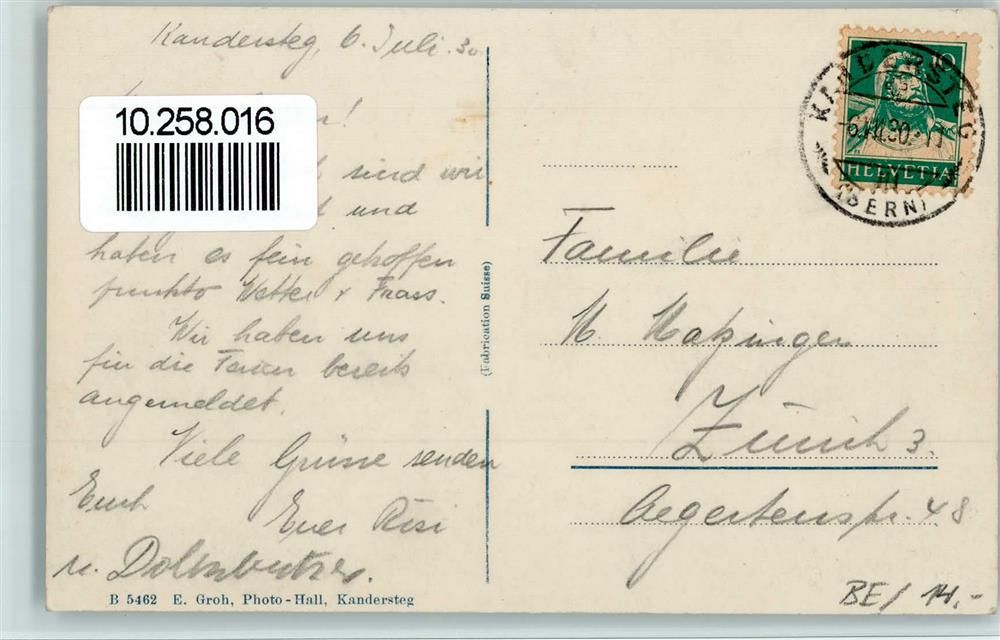 Kandersteg, 6. Juli 30
10.258.016
sind wir
und
haben es fein getroffen
punkto Wetter & Frass.
Wir haben uns
für die Ferien bereits
angemeldet.
Viele Grüsse senden
Euch
Euer Rösi
u.
B 5462 E. Groh, Photo-Hall, Kandersteg
(Fabrication Suisse)
10
HELVETIA
KANDERSTEG
6.VII.30.
(BERN)
Familie
Zürich 3.
Aegertenstr. 48
BE/ 14.-